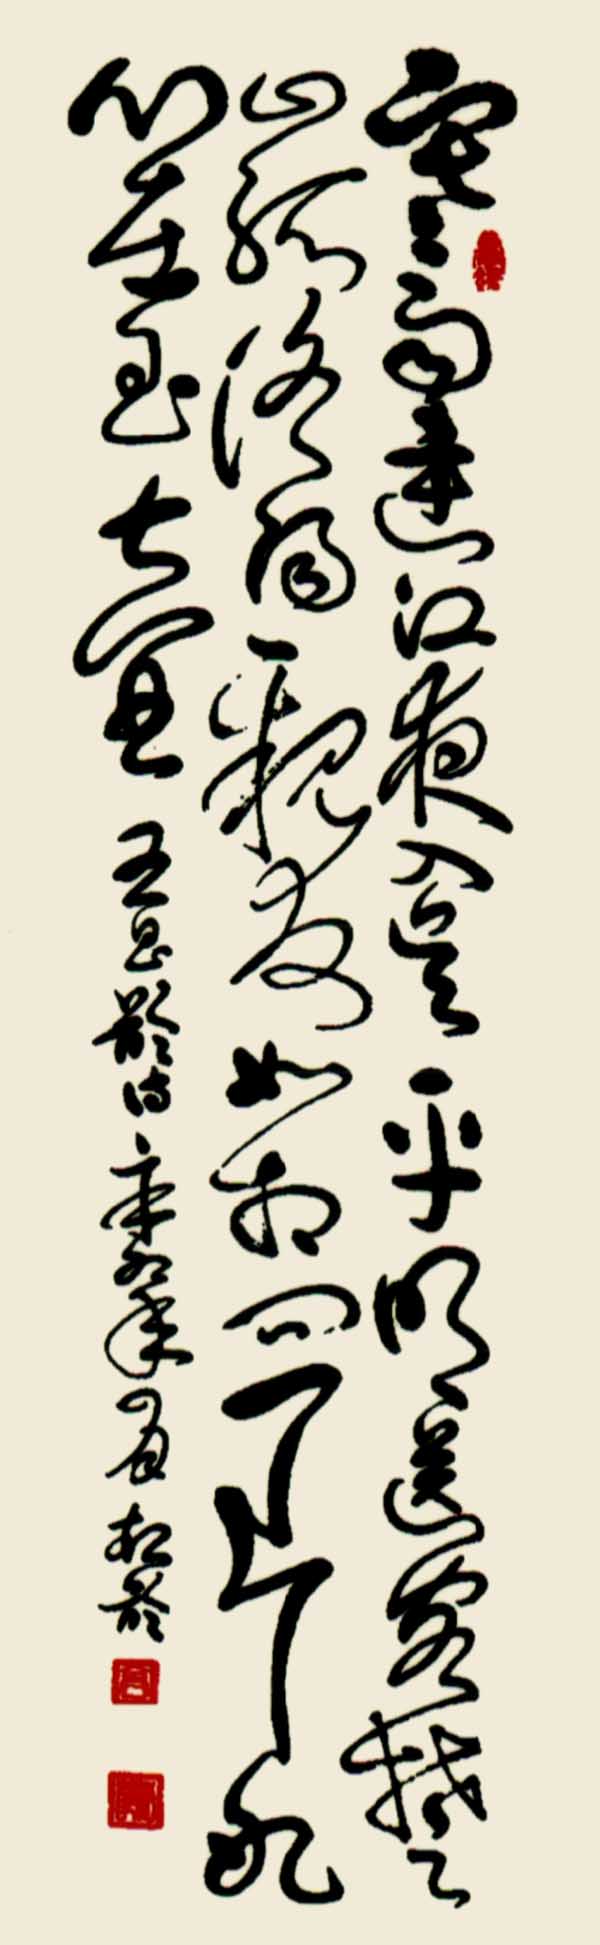 寒雨連江夜入吳平明送客楚
山孤洛陽親友如相問一片冰
心在玉壺 王昌齡詩 年 松齡